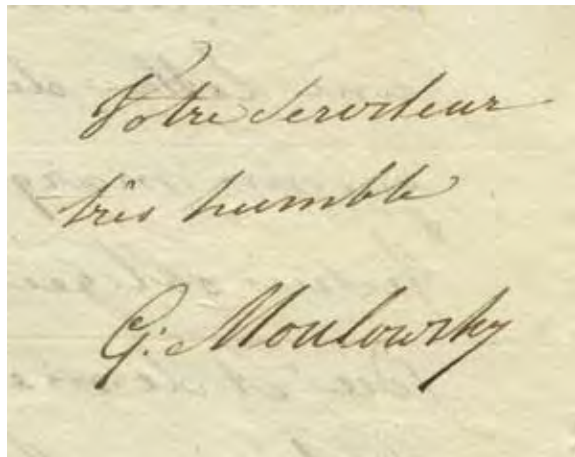 Votre Serviteur
très humble
G. Moulowsky